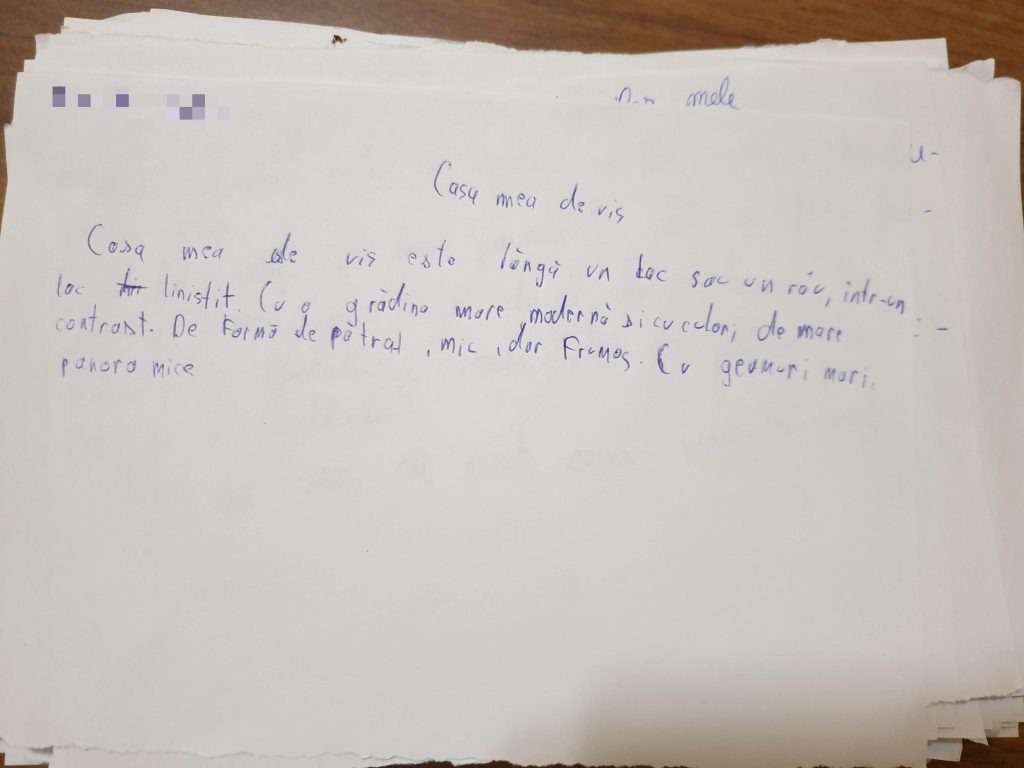 mele
Casa mea de vis
Casa mea de vis este lângă un lac sac un râu, într-un
loc liniștit. Cu o grădina mare, modernă si cu culori, de mare
contrast. De Formă de pătrat, mic, dar Frumos. Cu geamuri mari,
panoramice